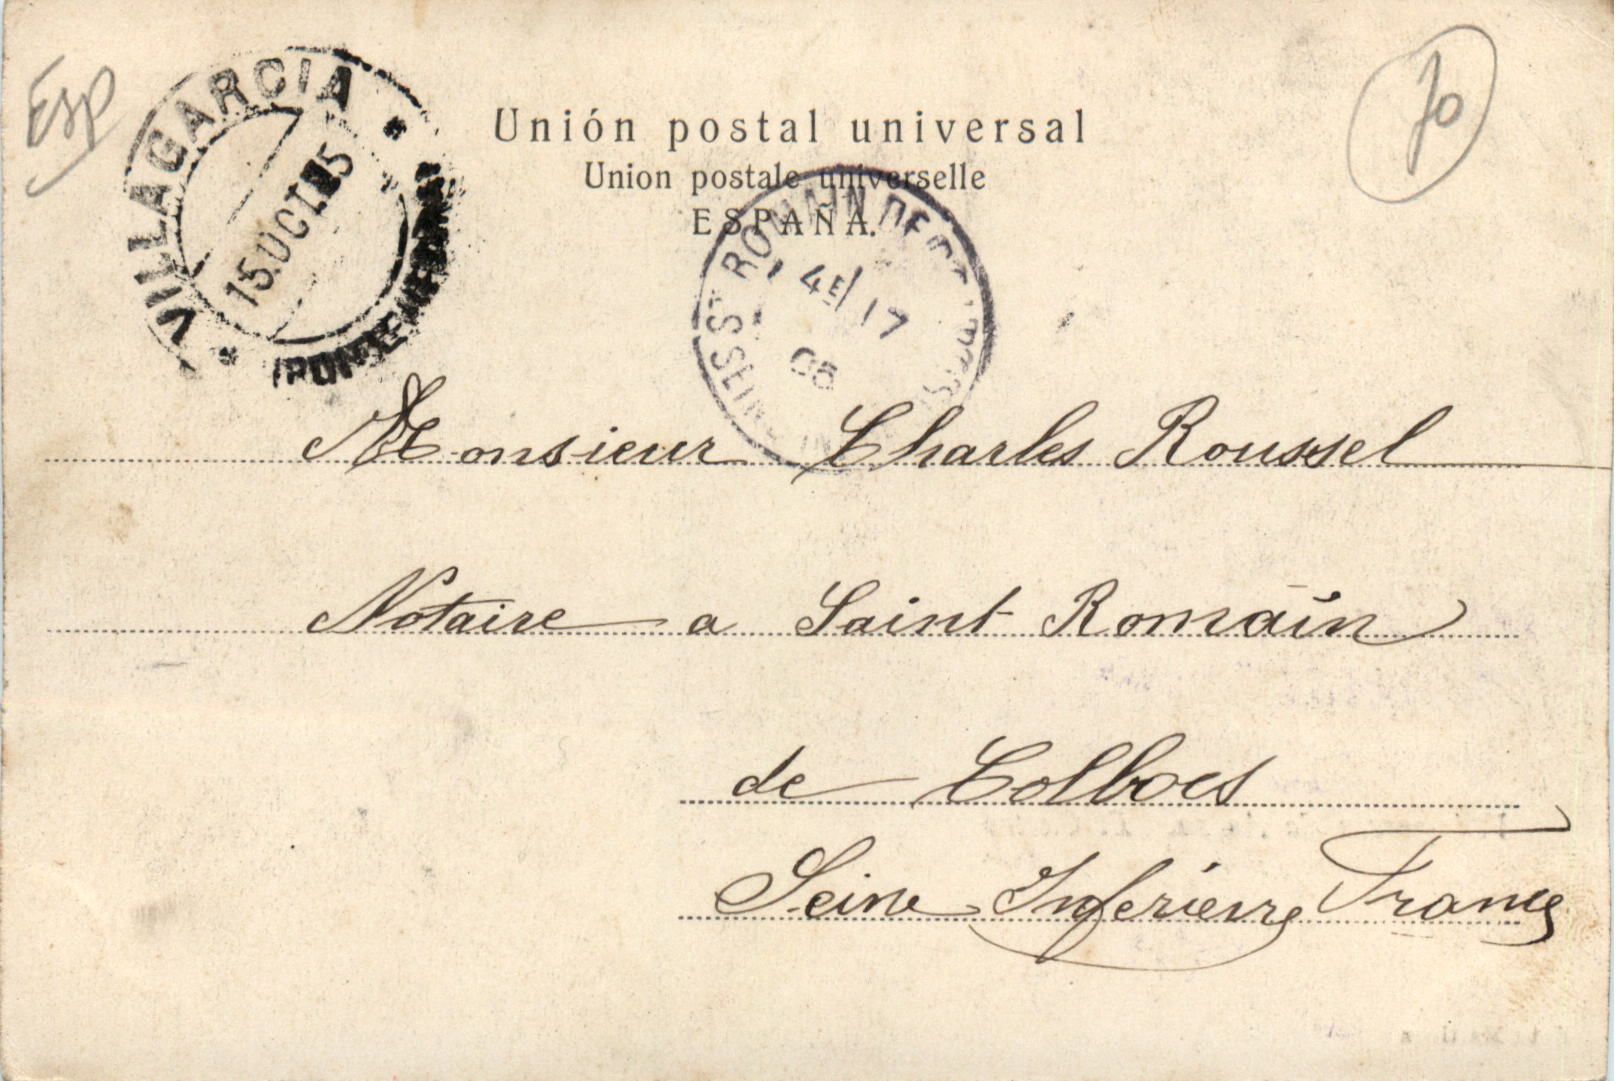 Esp
70
VILLAGARCIA
15.OCT.05
(PONTEVEDRA)
Unión postal universal
Union postale universelle
ESPAÑA.
ST ROMAIN DE
4E/17
05
SEINE
Monsieur Charles Roussel
Notaire a Saint Romain
de Colbocs
Seine Inférieure France